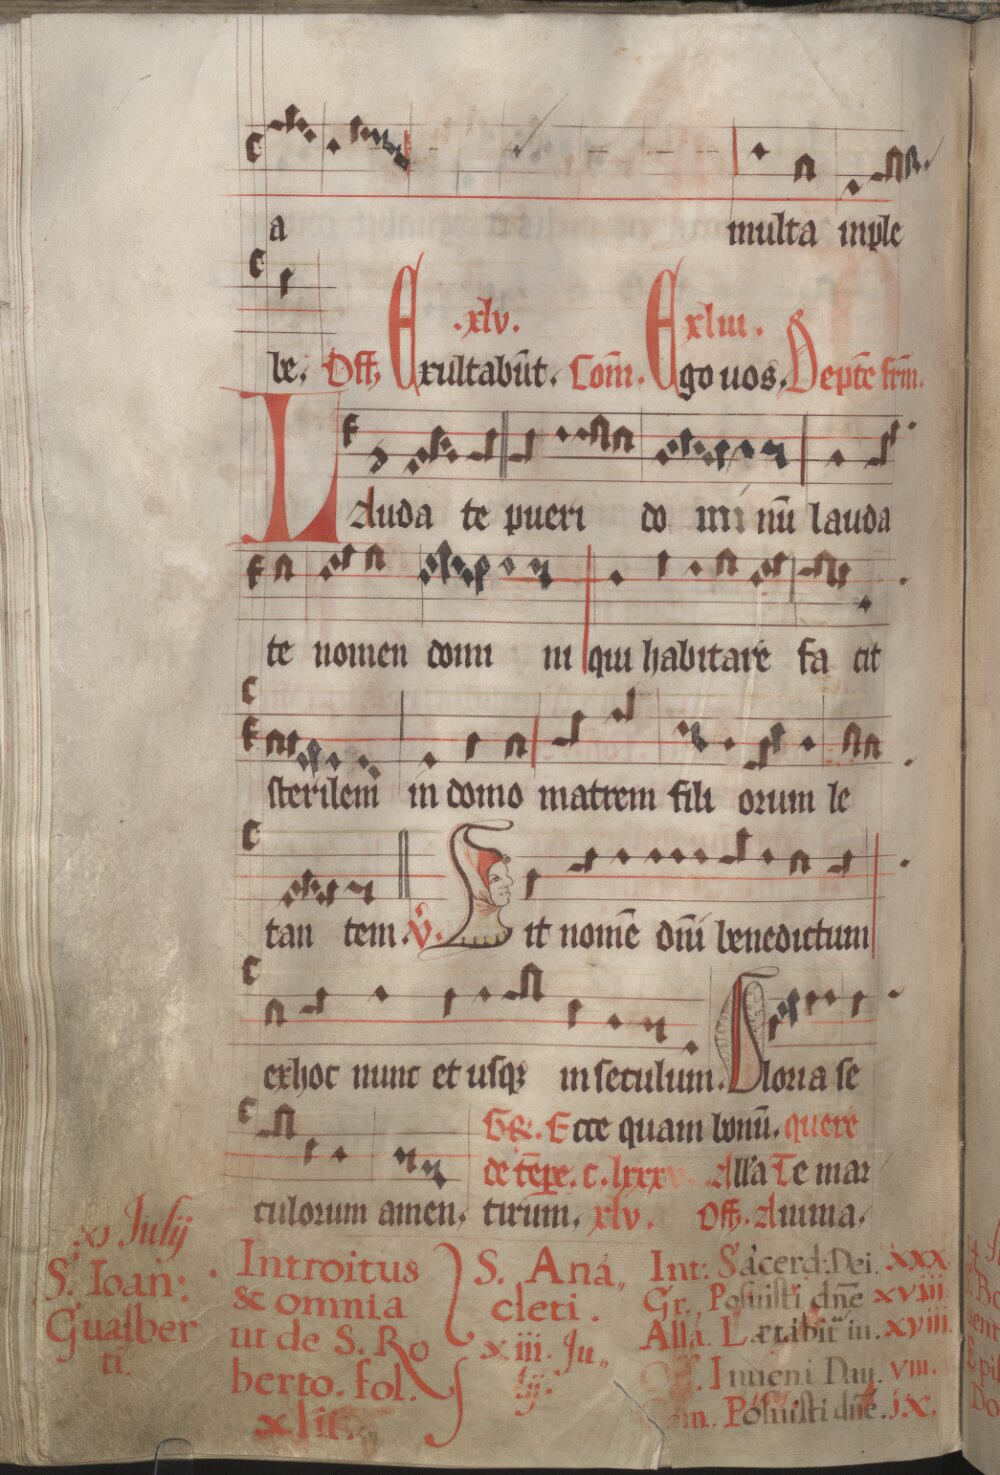 a multa inple
.xlv. xliii.
be. Off. Exultabūt. Com̄. Ego uos. Septē frm̄.
Lauda te pueri do mi nū lauda
te nomen domi ni qui habitare fa cit
sterilem in domo matrem fili orum le
tan tem. V. Sit nomē dn̄i benedictum
exhoc nunc et usq3 in seculum. Gloria se
GR. Ecce quam bonū. quere
de tēpe. c. lxxxv Alla Te mar
culorum amen. tirum. xlv. Off. Anima.
xj Julij
S. Ioan:
Gualber
ti.
Introitus
& omnia
ut de S. Ro
berto. fol.
xlii.
S. Ana„
cleti.
xiii. Ju„
lij.
Int: Sacerd: Dei. xxx
Gr. Posuisti dn̄e xviii.
Alla. Lætabit̄ iu. xviii.
Off. Inueni Dau. viii.
Com. Posuisti dn̄e. ix.